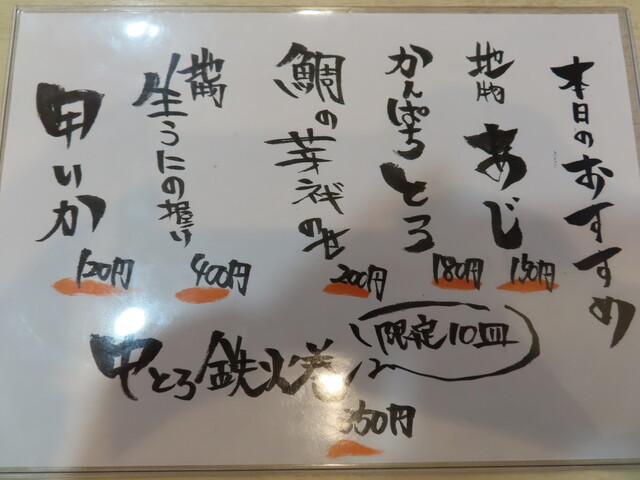 本日のおすすめ
地物
あじ
150円
かんぱちとろ
180円
鯛の芽ネギのせ
200円
地物
生うにの握り
400円
甲いか
120円
中とろ鉄火巻
限定10皿
350円